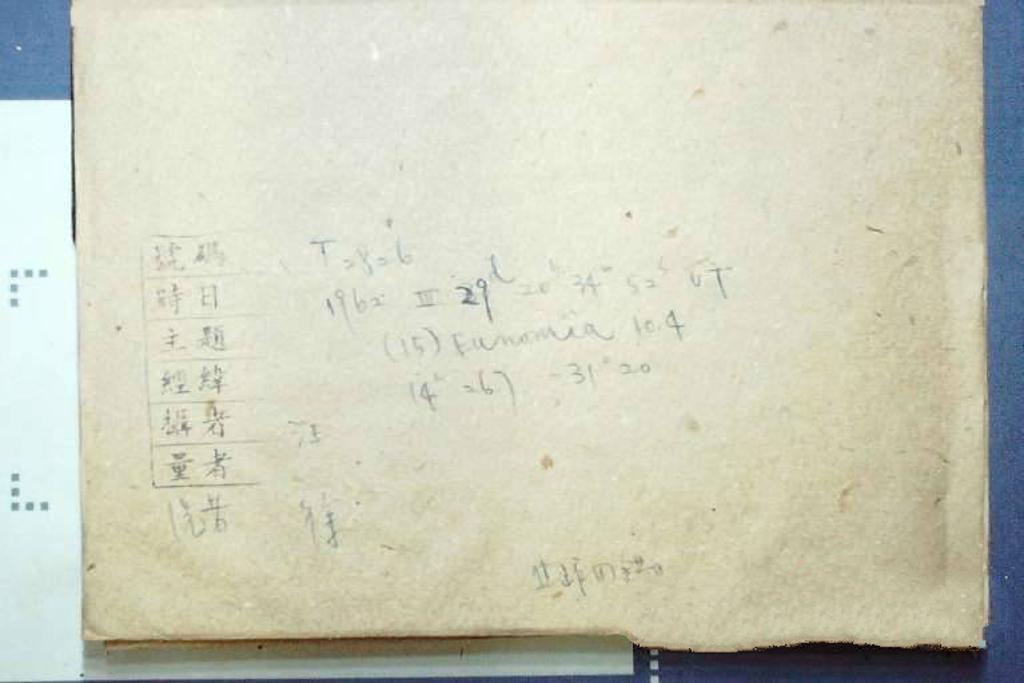 號碼 T 2826
時日 1962 III 29d 20h 34m 52s UT
主題 (15) Eunomia 10.4
經緯 14h 267 -31° 20
攝者 汪
量者
洗者 徐